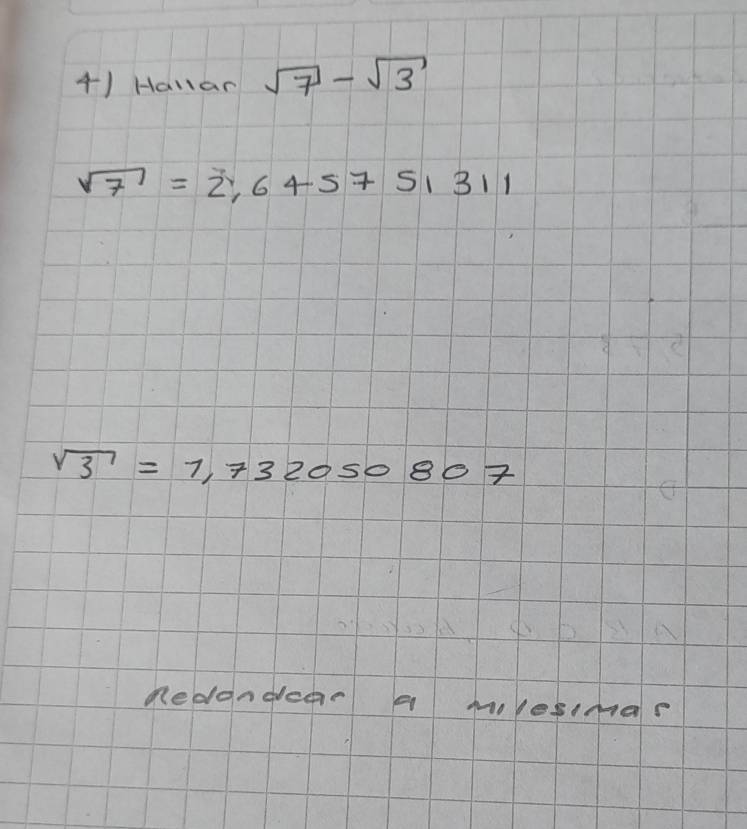 4) Hallar √7 - √3
√7 = 2,645751311
√3 = 1,732050807
Redondear a milesimas